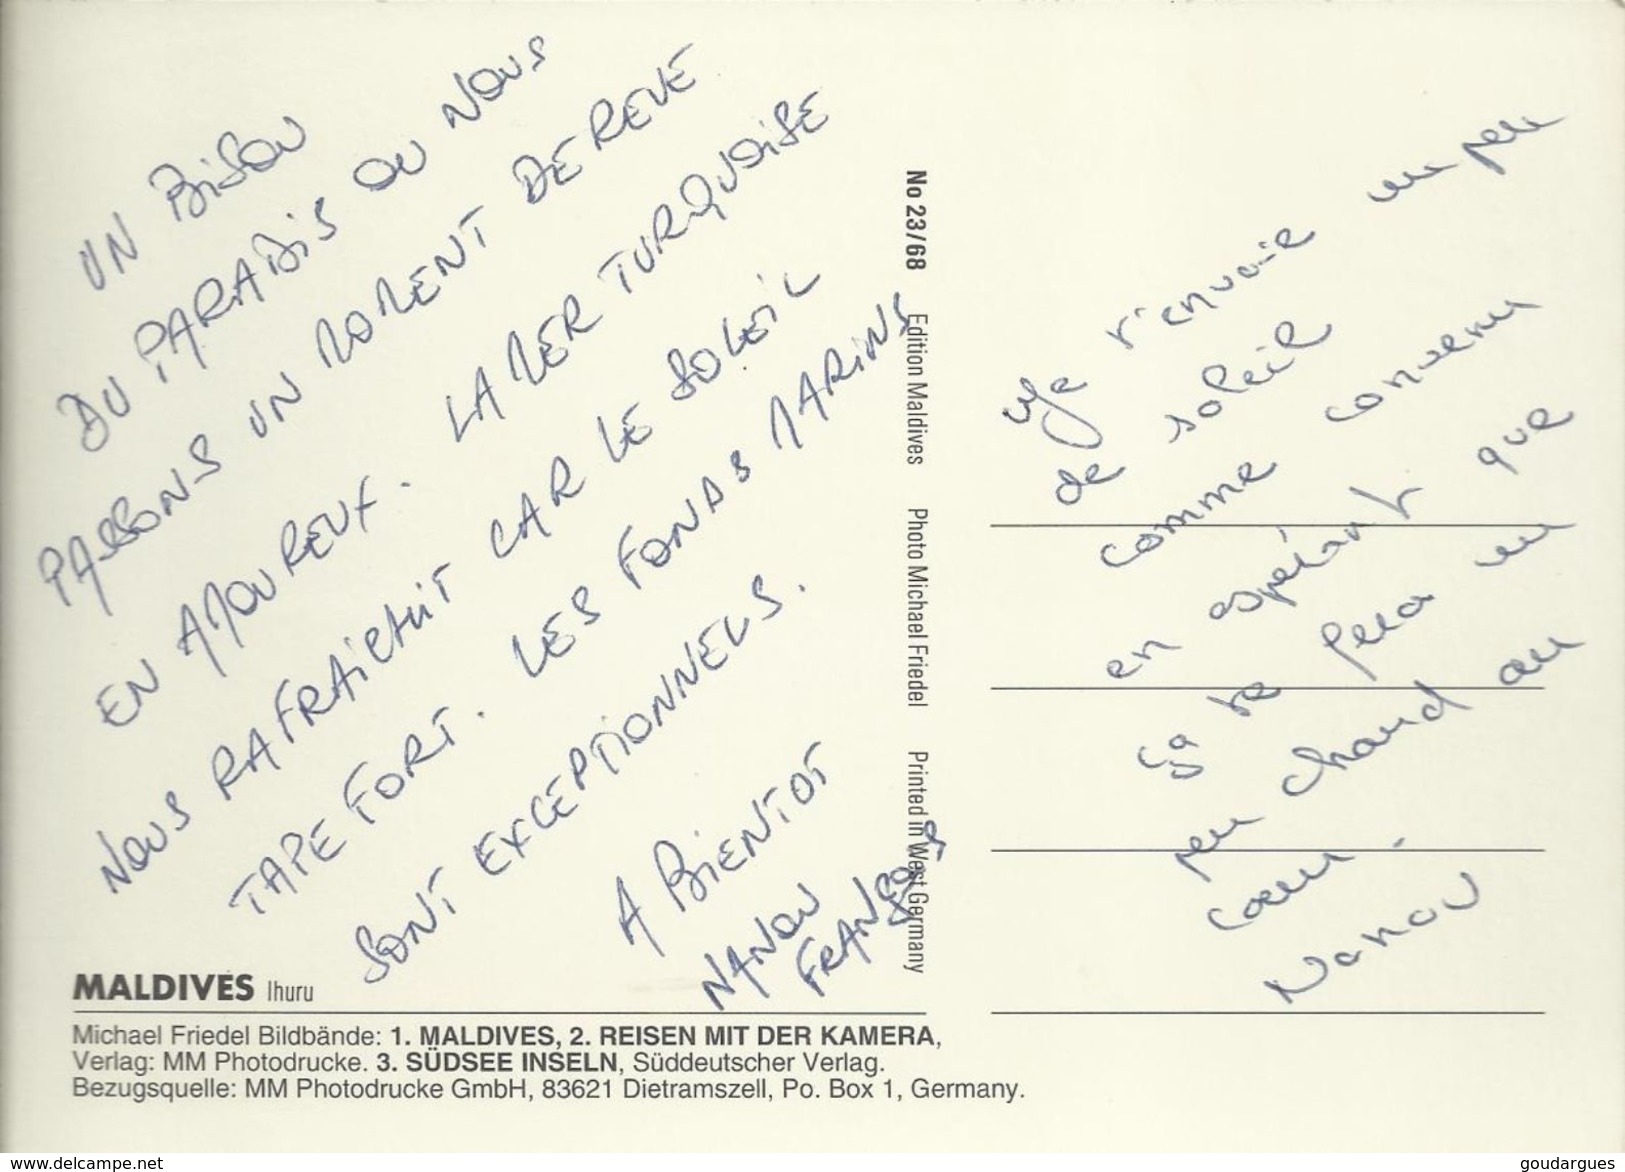 UN BISOU
DU PARADIS OU NOUS
PASSONS UN MOMENT DE REVE
EN AMOUREUX. LA MER TURQUOISE
NOUS RAFRAICHIT CAR LE SOLEIL
TAPE FORT. LES FONDS MARINS
SONT EXCEPTIONNELS.
A BIENTOT
NANOU
No 23/68 Edition Maldives Photo Michael Friedel Printed in West Germany
Je t'envoie un peu
de soleil
comme convenu
en espérant que
ça te fera un
peu chaud au
cœur.
Nanou
MALDIVES Ihuru
Michael Friedel Bildbände: 1. MALDIVES, 2. REISEN MIT DER KAMERA,
Verlag: MM Photodrucke. 3. SÜDSEE INSELN, Süddeutscher Verlag.
Bezugsquelle: MM Photodrucke GmbH, 83621 Dietramszell, Po. Box 1, Germany.
www.delcampe.net
goudargues